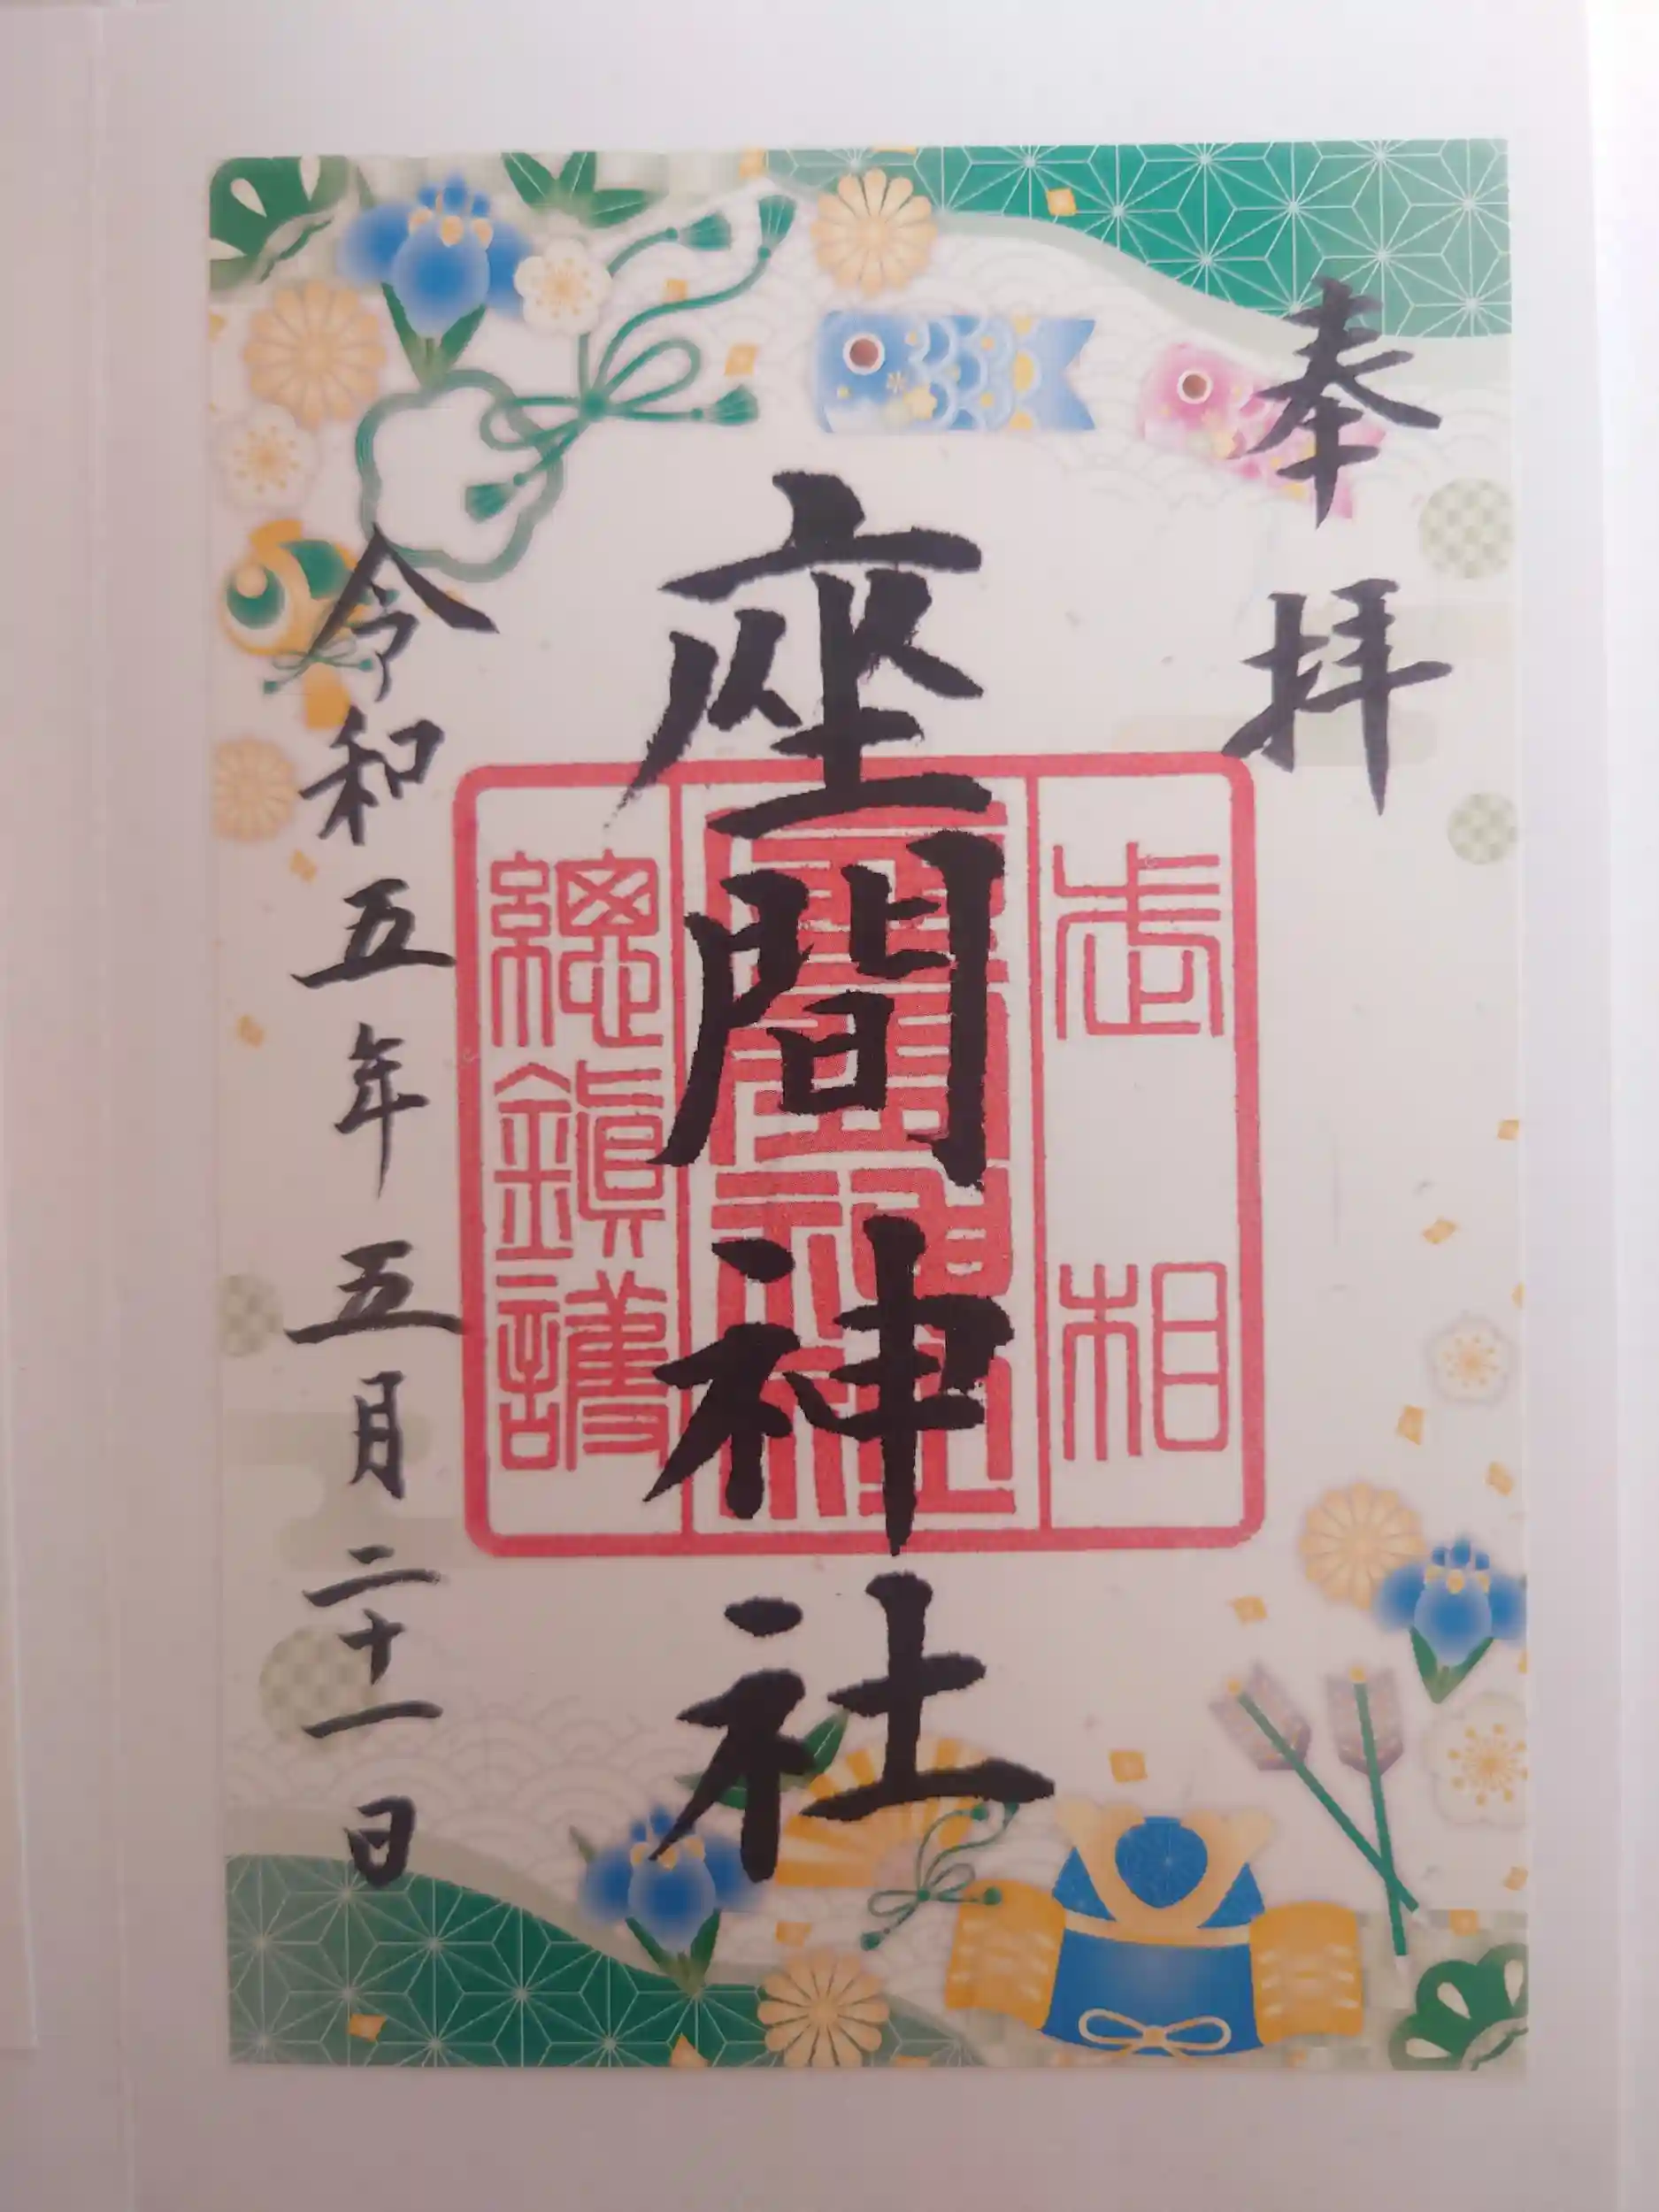 奉拝
相武
座間神社
總鎮護
令和五年五月二十一日